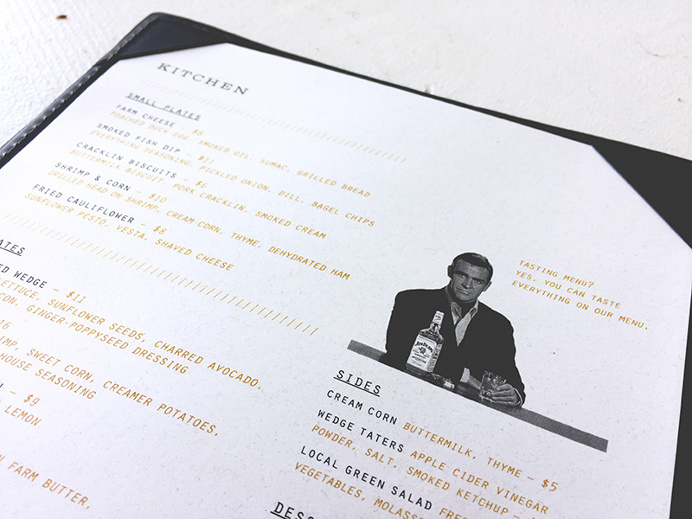 KITCHEN
SMALL PLATES
FARM CHEESE - $8
POACHED DUCK EGG, SMOKED OIL, SUMAC, GRILLED BREAD
SMOKED FISH DIP - $11
EVERYTHING SEASONING, PICKLED ONION, DILL, BAGEL CHIPS
CRACKLIN BISCUITS - $6
BUTTERMILK BISCUIT, PORK CRACKLIN, SMOKED CREAM
SHRIMP & CORN - $10
GRILLED HEAD ON SHRIMP, CREAM CORN, THYME, DEHYDRATED HAM
FRIED CAULIFLOWER - $8
SUNFLOWER PESTO, VESTA, SHAVED CHEESE
ATES
ED WEDGE - $11
ETTUCE, SUNFLOWER SEEDS, CHARRED AVOCADO,
CON, GINGER-POPPYSEED DRESSING
16
IMP, SWEET CORN, CREAMER POTATOES,
HOUSE SEASONING
- $9
LEMON
N FARM BUTTER,
TASTING MENU?
YES. YOU CAN TASTE
EVERYTHING ON OUR MENU.
JIM BEAM
SIDES
CREAM CORN BUTTERMILK, THYME - $5
WEDGE TATERS APPLE CIDER VINEGAR
POWDER, SALT, SMOKED KETCHUP -
LOCAL GREEN SALAD FRE
VEGETABLES, MOLASS
DES